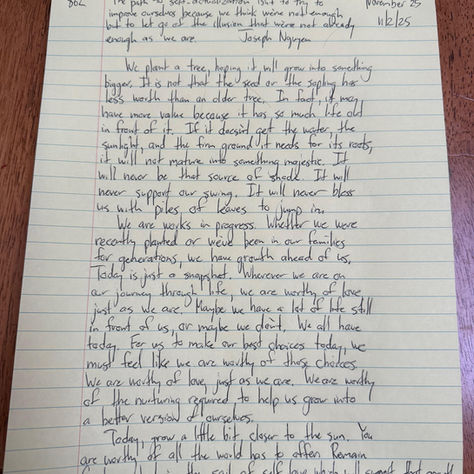 862 The path to self-actualization isn't to try to November 25
improve ourselves because we think we're not enough 11/2/25
but to let go of the illusion that we're not already
enough as we are. Joseph Nguyen
We plant a tree, hoping it will grow into something
bigger. It is not that the seed or the sapling has
less worth than an older tree. In fact, it may
have more value because it has so much life out
in front of it. If it doesn't get the water, the
sunlight, and the firm ground it needs for its roots,
it will not mature into something majestic. It
will never be that source of shade. It will
never support our swing. It will never bless
us with piles of leaves to jump in.
We are works in progress. Whether we were
recently planted or we've been in our families
for generations, we have growth ahead of us.
Today is just a snapshot. Wherever we are on
our journey through life, we are worthy of love,
just as we are. Maybe we have a lot of life still
in front of us, or maybe we don't. We all have
today. For us to make our best choices today, we
must feel like we are worthy of those choices.
We are worthy of love, just as we are. We are worthy
of the nurturing required to help us grow into
a better version of ourselves.
Today, grow a little bit closer to the sun. You
are worthy of all the world has to offer. Remain
in the soil of self love